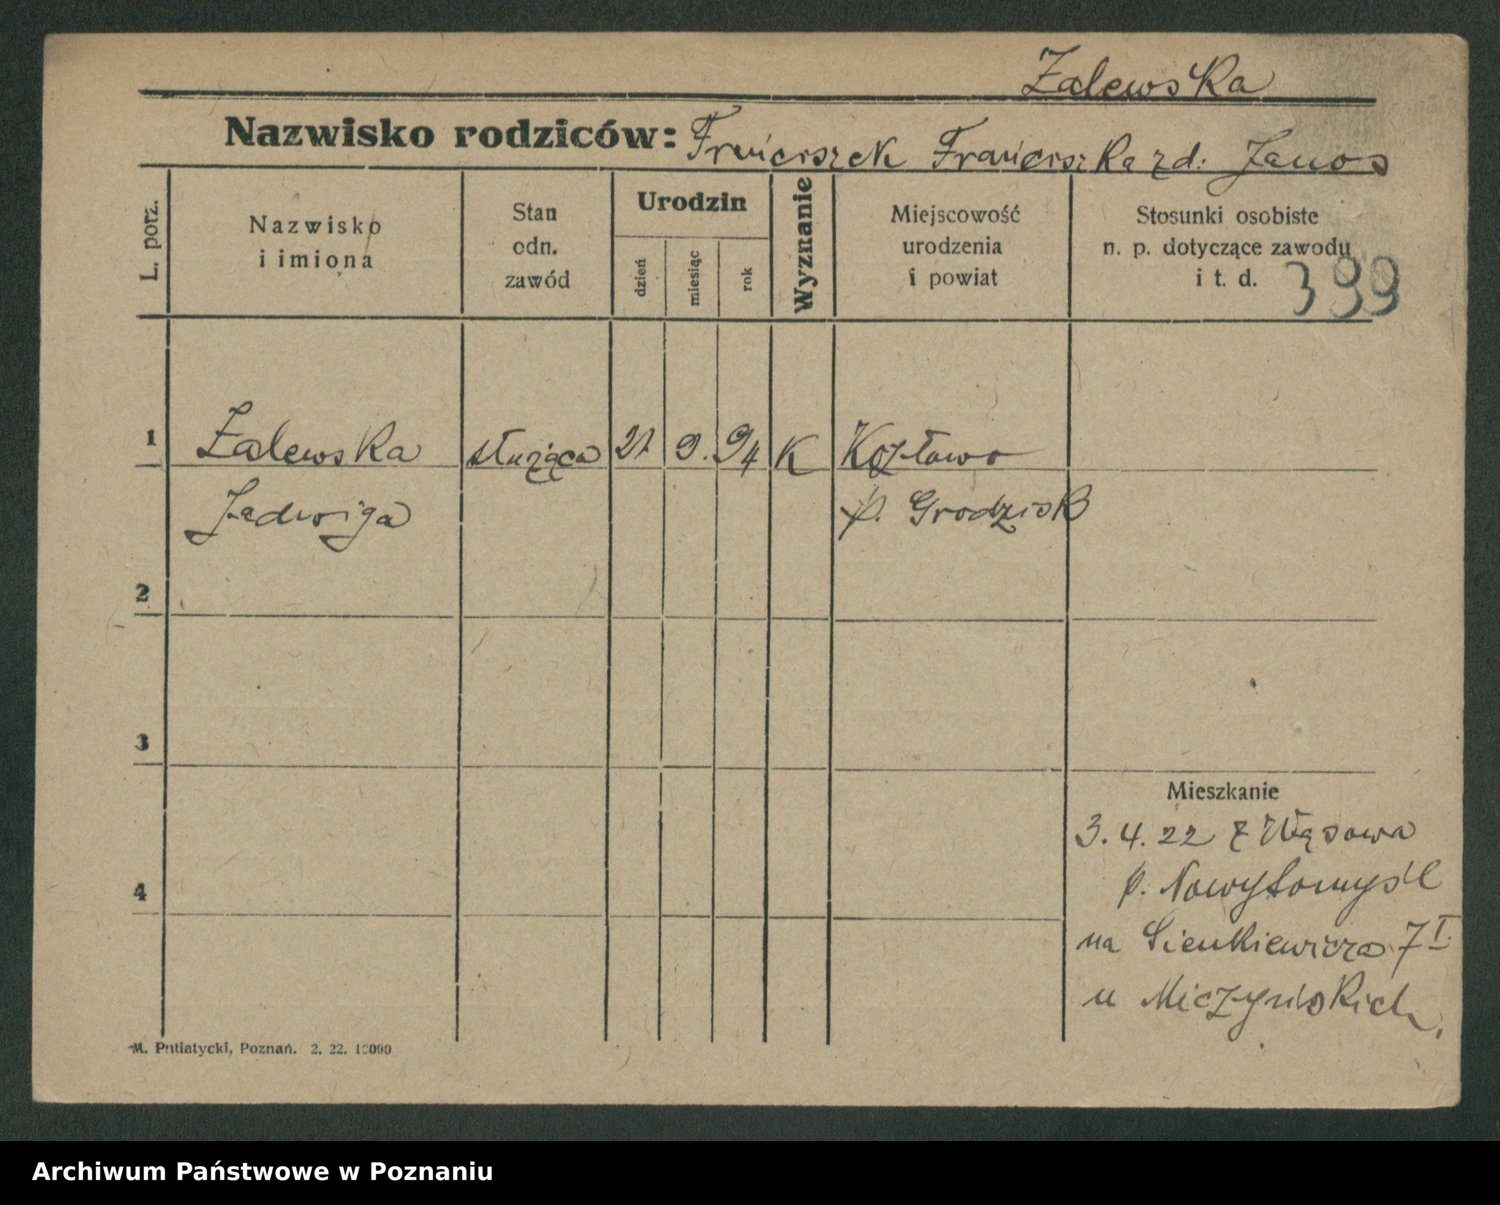 Zalewska
Nazwisko rodziców: Franciszek Franciszka zd: Janos
L. porz.
Nazwisko
i imiona
Stan
odn.
zawód
Urodzin
dzień
miesiąc
rok
Wyznanie
Miejscowość
urodzenia
i powiat
Stosunki osobiste
n. p. dotyczące zawodu
i t. d.
399
1 Zalewska służąca 21 9. 94 K Kozłowo
Jadwiga p. Grodzisk
2
3
4
Mieszkanie
3. 4. 22 z Wąsowa
p. Nowytomyśl
na Sienkiewicza 7 I.
u Miczyńskich.
M. Putiatycki, Poznań. 2. 22. 10000
Archiwum Państwowe w Poznaniu